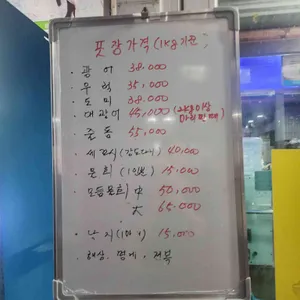 풋장가격 (1kg 기준)
· 광어 38,000
· 우럭 35,000
· 도미 38,000
· 대광어 45,000 (2kg이상
· 줄돔 55,000
· 세꼬시 40,000
· 문희 (1인분) 15,000
· 모듬문희 中 50,000
大 65,000
· 낙지 15,000
· 해삼. 멍게. 전복